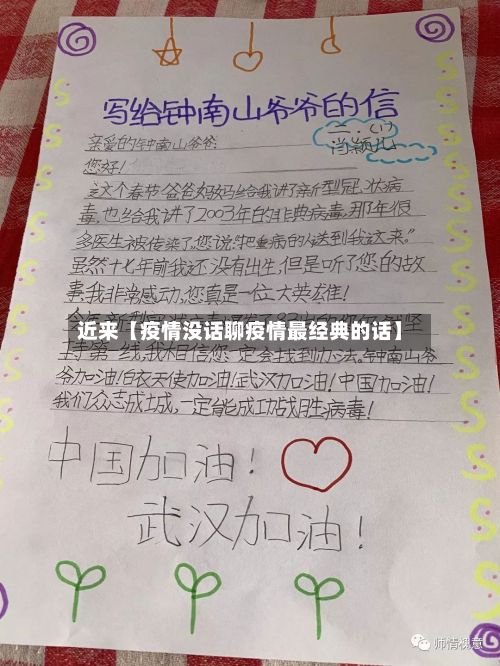 写给钟南山爷爷的信
二.（1）
肖颖儿
亲爱的钟南山爷爷:
您好!
这个春节爸爸妈妈给我讲了新型冠状病
毒,也给我讲了2003年的非典病毒,那年很
多医生被传染了。您说:“把重病的人送到我这来。”
虽然十七年前我还没有出生,但是听了您的故
事,我非常感动,您真是一位大英雄!
近来【疫情没话聊疫情最经典的话】
第一线,我相信您一定会找到办法。钟南山爷
爷加油!白衣天使加油!武汉加油!中国加油!
我们众志成城,一定能成功战胜病毒!
中国加油!
武汉加油!
师情视意